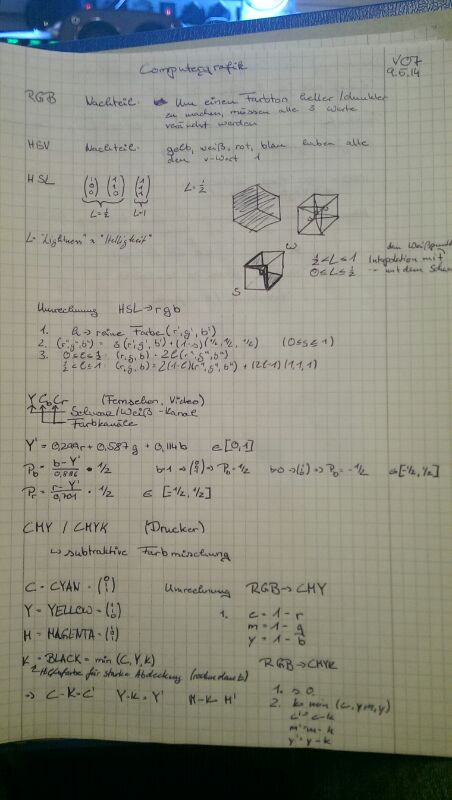 Computergrafik
VO7
9.5.14
RGB Nachteil: Um einem Farbton heller/dunkler
zu machen, müssen alle 3 Werte
verändert werden
HSV Nachteil: gelb, weiß, rot, blau haben alle
den v-Wert 1
HSL (1 0 0) (1 1 0) (1 1 1) L = 1/2
L = 1/2 L=1
L = "Lightness" "Helligkeit"
W
S
den Weißpunkt
1/2 < L ≤ 1 Interpolation mit
0 ≤ L ≤ 1/2 -"- mit dem
Umrechnung HSL → rgb
1. h → reine Farbe (r', g', b')
2. (r", g", b") = s(r', g', b') + (1-s)(1/2, 1/2, 1/2) (0≤s≤1)
3. 0≤l≤1/2 (r,g,b) = 2l(r", g", b")
1/2≤l≤1 (r,g,b) = 2(1-l)(r", g", b") + (2l-1)(1,1,1)
YCbCr (Fernsehen, Video)
Schwarz/Weiß-Kanal
Farbkanäle
Y' = 0,299r + 0,587g + 0,114b ∈ [0,1]
Pb = b-Y'/0,886 • 1/2 b=1 → (0 0 1) → Pb = 1/2 b=0 → (1 1 0) → Pb = -1/2 ∈ [-1/2, 1/2]
Pr = r-Y'/0,701 • 1/2 ∈ [-1/2, 1/2]
CMY / CMYK (Drucker)
↳ subtraktive Farbmischung
C = CYAN = (0 1 1) Umrechnung RGB → CMY
Y = YELLOW = (1 1 0) 1. c = 1 - r
m = 1 - g
M = MAGENTA = (1 0 1) y = 1 - b
K = BLACK = min (C, Y, K) RGB → CMYK
für starke Abdeckung
⇒ C-K = C' Y-K = Y' M-K = M' 1. s.o.
2. k = min (c, m, y)
c' = c-k
m' = m-k
y' = y-k